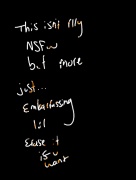 This isnt rlly
NSFW
but more
just...
Embarrassing
lol
Erase it
if u
want